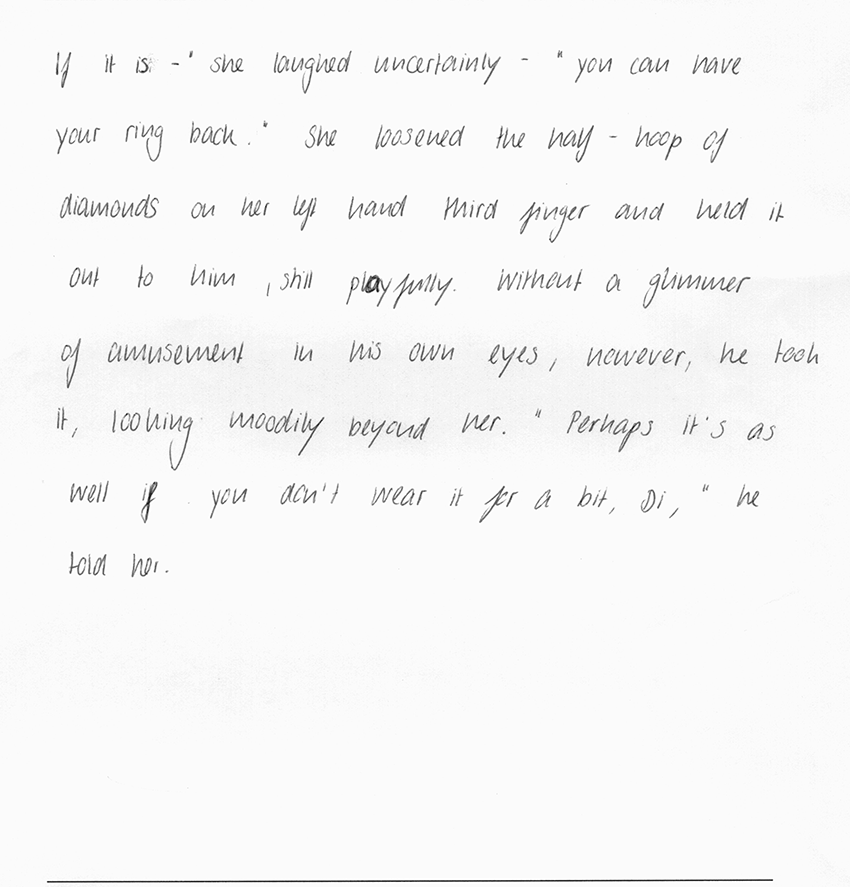 If it is -" she laughed uncertainly - "you can have
your ring back." She loosened the half - hoop of
diamonds on her left hand third finger and held it
out to him, still playfully. Without a glimmer
of amusement in his own eyes, however, he took
it, looking moodily beyond her. "Perhaps it's as
well if you don't wear it for a bit, Di," he
told her.